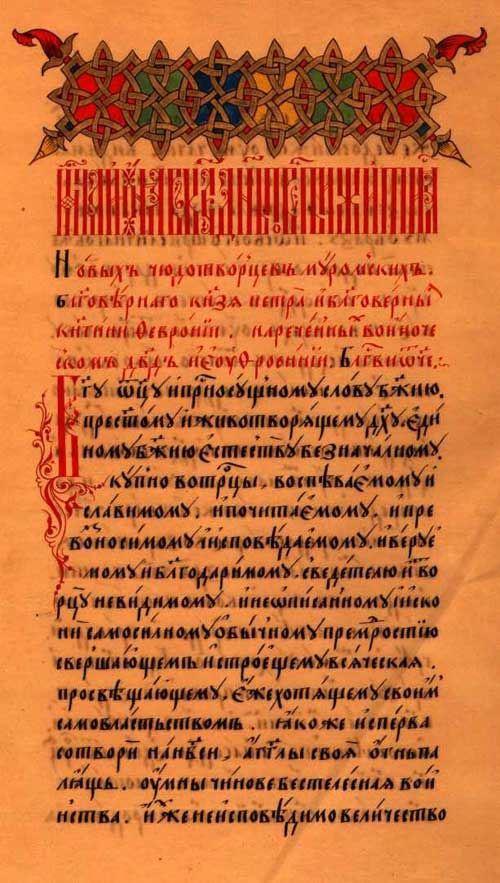 Новыхъ чюдотворцевъ муромскихъ.
бл҃говѣрнаго кн҃зя петра, и благоверныѧ
кн҃гини ѳевронїи. нареченныⷯ во иноче
скомъ
бг҃у ѿцу и присносущному слову бж҃ию.
и прест҃ому и животворящему дх҃у. еди
ному бж҃ию естеству безначалному.
купно в троицы. воспѣваемому и
славимому. и почитаемому. и пре
возносимому и исповѣдаемому. и веруе
мому и благодаримому. сведетелю и тво
рцу невидимому и неѡписанному иско
ни самосилному обычному премрⷣостїю
свершающемъ и строещему всяческая.
просвѣщающему, еже хотящему своиⷨ
самовластьствомъ. якоже исперва
сотвори на нбⷭ҇и, аг҃глы своя ѻгнь па
лящь. оумны чинове бестелесная вои
нства. иже неисповѣдимо величество